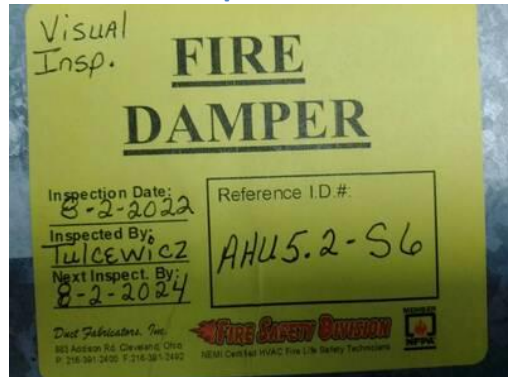 Visual
Insp.
FIRE
DAMPER
Inspection Date:
8-2-2022
Inspected By:
Tulcewicz
Next Inspect. By:
8-2-2024
Reference I.D.#:
AHU5.2-S6
Duct Fabricators, Inc.
883 Addison Rd. Cleveland, Ohio
P: 216-391-2400 F: 216-391-2492
FIRE SAFETY DIVISION
NEMI Certified HVAC Fire Life Safety Technicians
MEMBER
NFPA